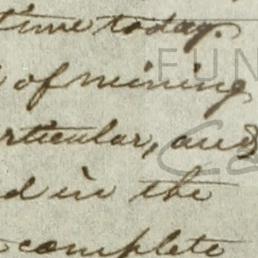 time today.
of mining
rticular, and
d in the
complete
FUN